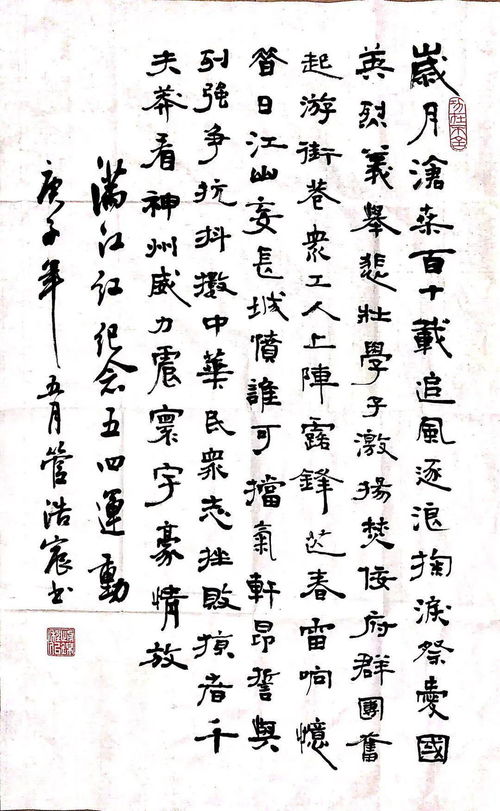 歲月滄桑百十載追風逐浪掬淚祭愛國
英烈義舉悲壯學子激揚焚佞府群團奮
起游街巷眾工人上陣露鋒芒春雷响憶
日江山妄長城憤誰可擋氣軒昂誓與
列強爭抗抖擻中華民眾志挫敗掠者千
夫莽看神州威力震寰宇豪情放
滿江红纪念五四運動
庚子年五月管浩宸书